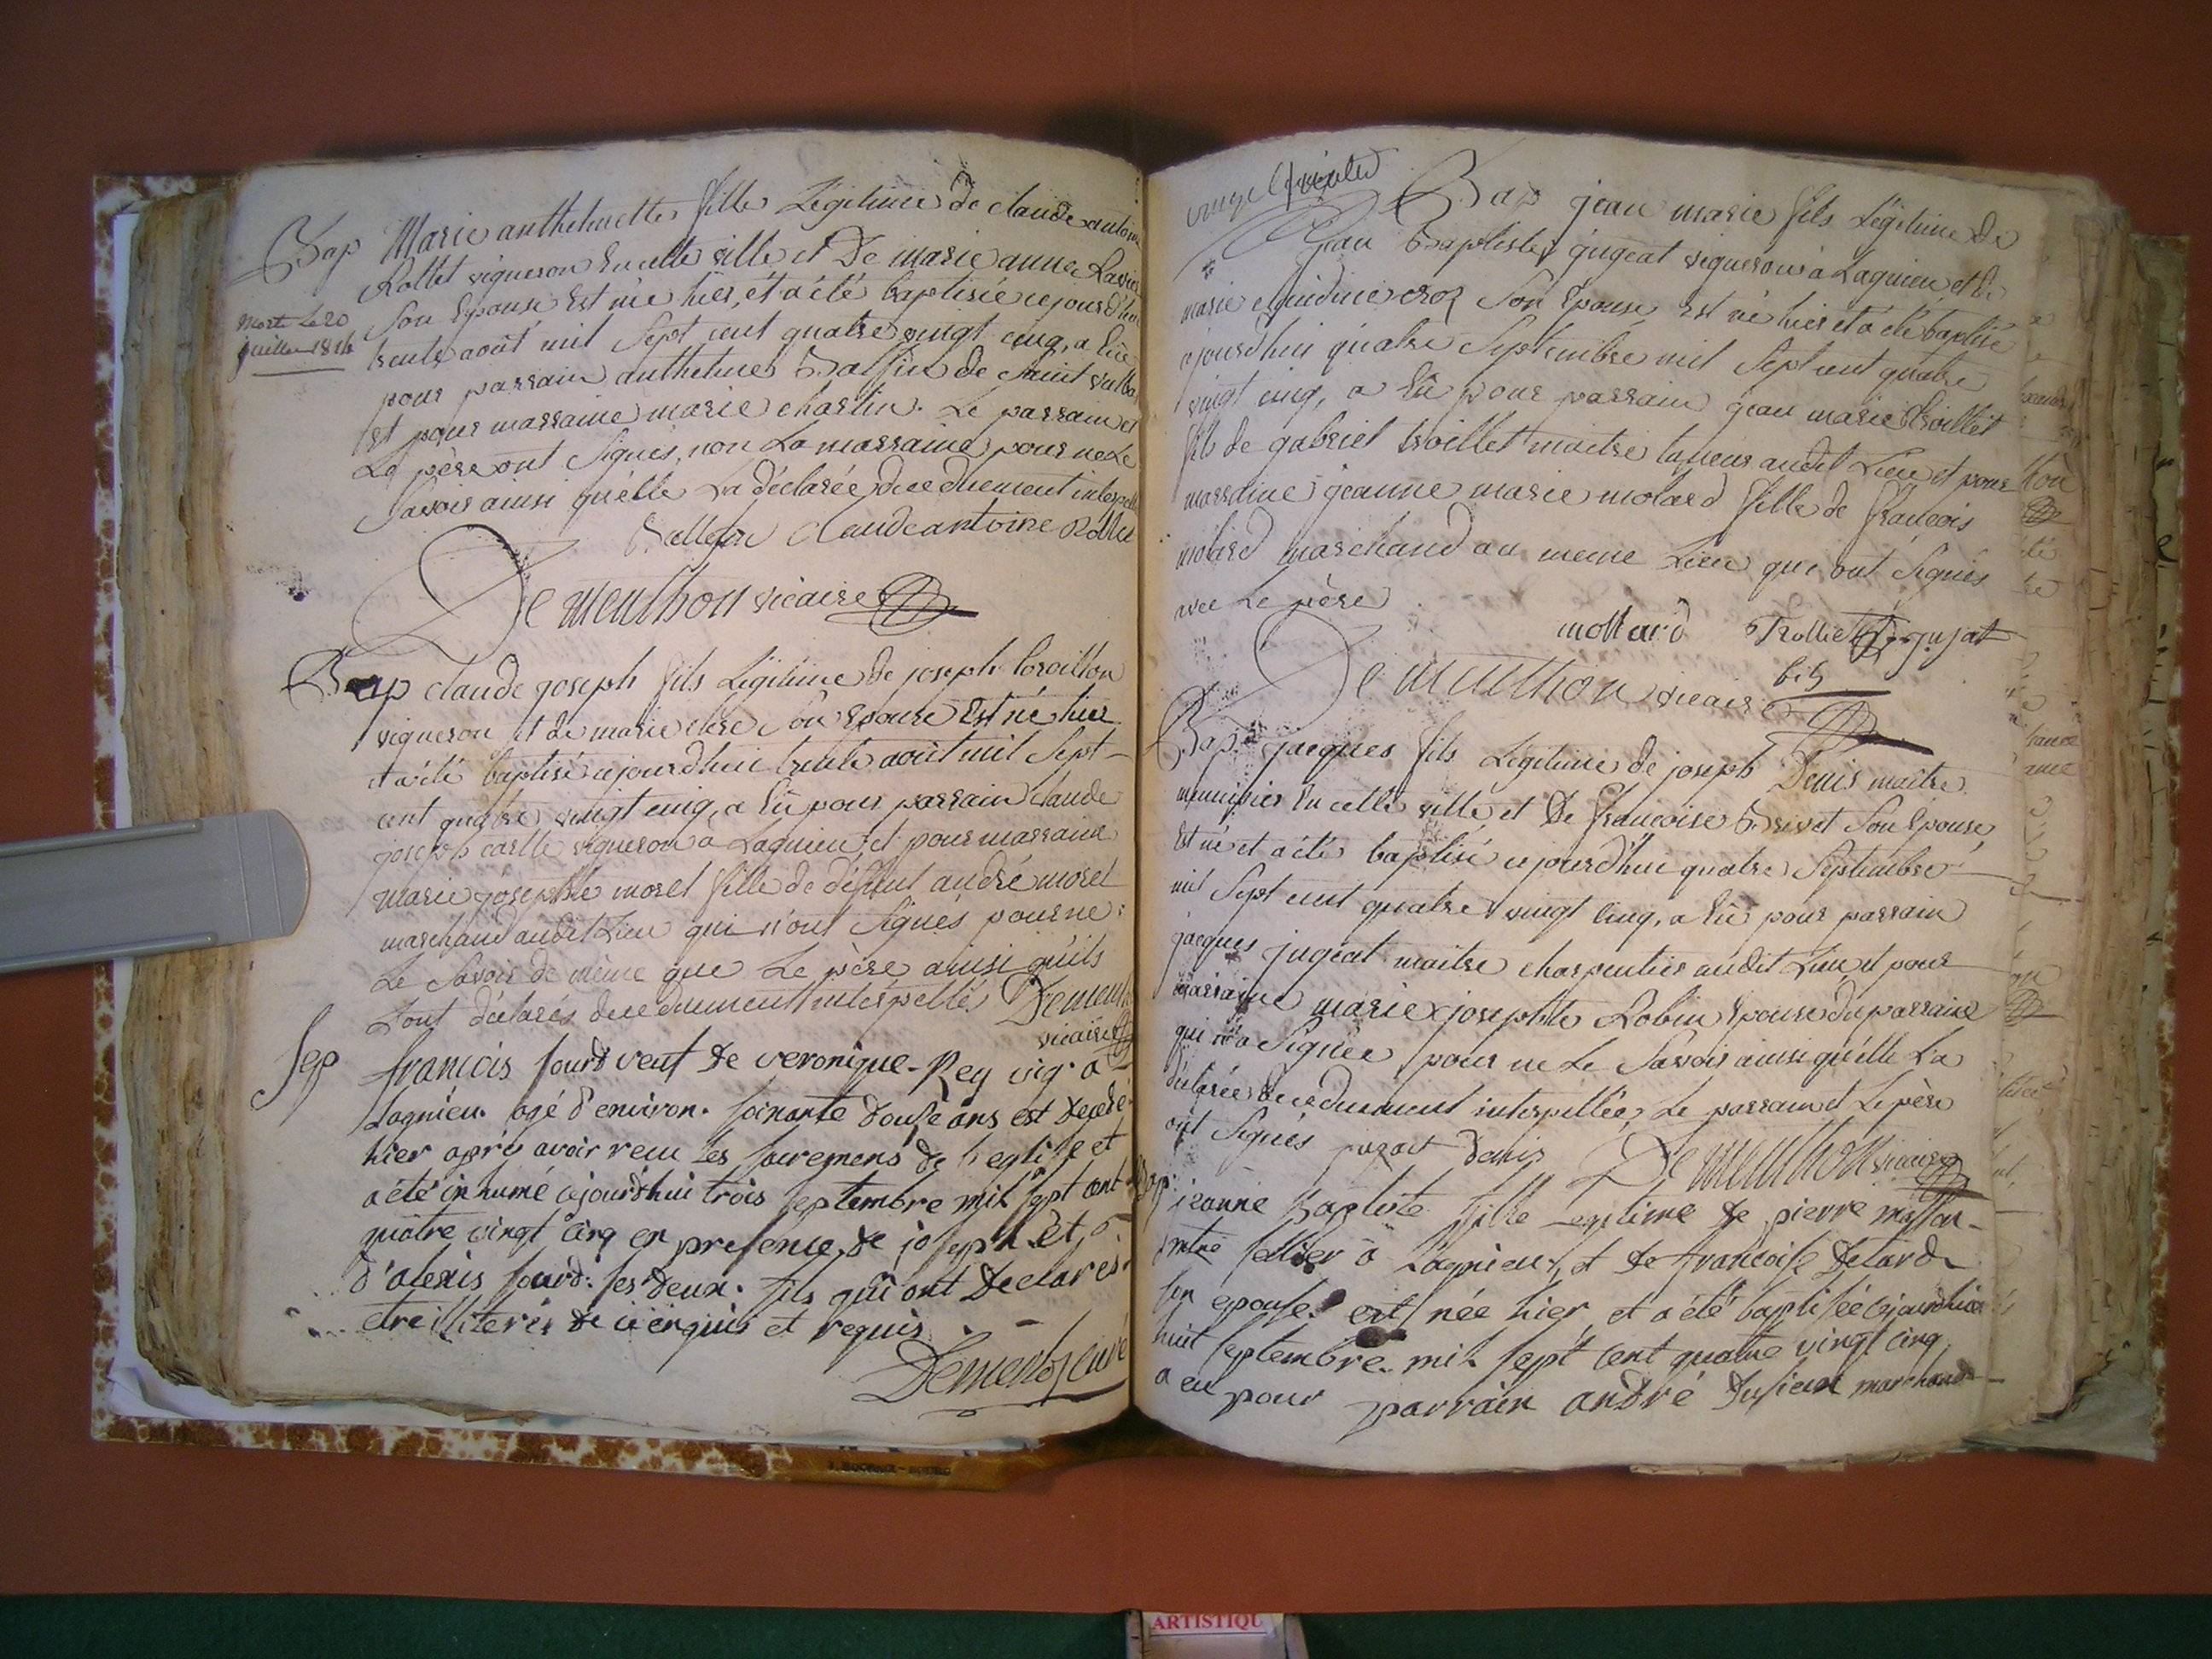 Bap Marie anthelmette fille Légitime de claude antoine
Rollet vigneron En cette ville et De marie anne Ravier
Son Epouse Est née hier, et a été baptisée cejourd'hui
mort le 20
juillet 1814
trente août mil Sept cent quatre vingt cinq, a Eüe
pour parrain anthelme Ballfin de Saint
et pour marraine marie charlin. Le parrain et
Le père ont Signés, non La marraine pour ne Le
Savoir ainsi qu'elle La déclarée dûe duement interpellée
claude antoine Rollet
De menthon vicaire
Bap claude joseph fils Légitime de joseph
vigneron et de marie clere Son Epouse Est né hier
et a été baptisé cejourd'hui trente août mil Sept
cent quatre vingt cinq, a Eû pour parrain claude
joseph vigneron a Lagnieu et pour marraine
marie josephte morel fille de défunt andré morel
marchand audit Lieu qui n'ont Signés pour ne
Le Savoir de même que Le père ainsi qu'ils
L'ont déclarés duement interpellé Dementhon
vicaire
Sep françois Sourd veuf De veronique Rey vig. a
Lagnieu agé d'environ Soixante Douse ans est Decedé
hier après avoir recu Les Sacremens de l'eglise et
a été inhumé cejourd'hui trois Septembre mil Sept cent
quatre vingt cinq en presence de joseph et
d'alexis Sourd ses Deux fils qui ont Declarés
etre illiterés de ce enquis et requis
curé
Bap jean marie fils Légitime De
jean Baptiste jugeat vigneron a Lagnieu et De
marie croz Son Epouse Est né hier et a été baptisé
cejourd'hui quatre Septembre mil Sept cent quatre
vingt cinq, a Eû pour parrain jean marie troillet
fils de gabriel troillet maitre audit Lieu et pour
marraine jeanne marie molard fille de françois
molard marchand au meme Lieu qui ont Signés
avec Le père
mollard Trolliet jujat
fils
De menthon vicaire
Bap jacques fils Légitime de joseph Denis maitre
menuisier En cette ville et De françoise Brivet Son Epouse
Est né et a été baptisé cejourd'hui quatre Septembre
mil Sept cent quatre vingt cinq, a Eû pour parrain
jacques jugeat maitre charpentier audit Lieu et pour
marraine marie josephte Robin Epouse du parrain
qui n'a Signée pour ne Le Savoir ainsi qu'elle La
déclarée de ce duement interpellée, Le parrain et Le père
ont Signés jujat denis De menthon vicaire
Bap jeanne Baptiste fille legitime De pierre
mtre Sellier a Lagnieu, et De françoise Delard
Son épouse est née hier et a été baptisée cejourd'hui
huit Septembre mil Sept cent quatre vingt cinq
a eu pour parrain andré marchand
ARTISTIQU